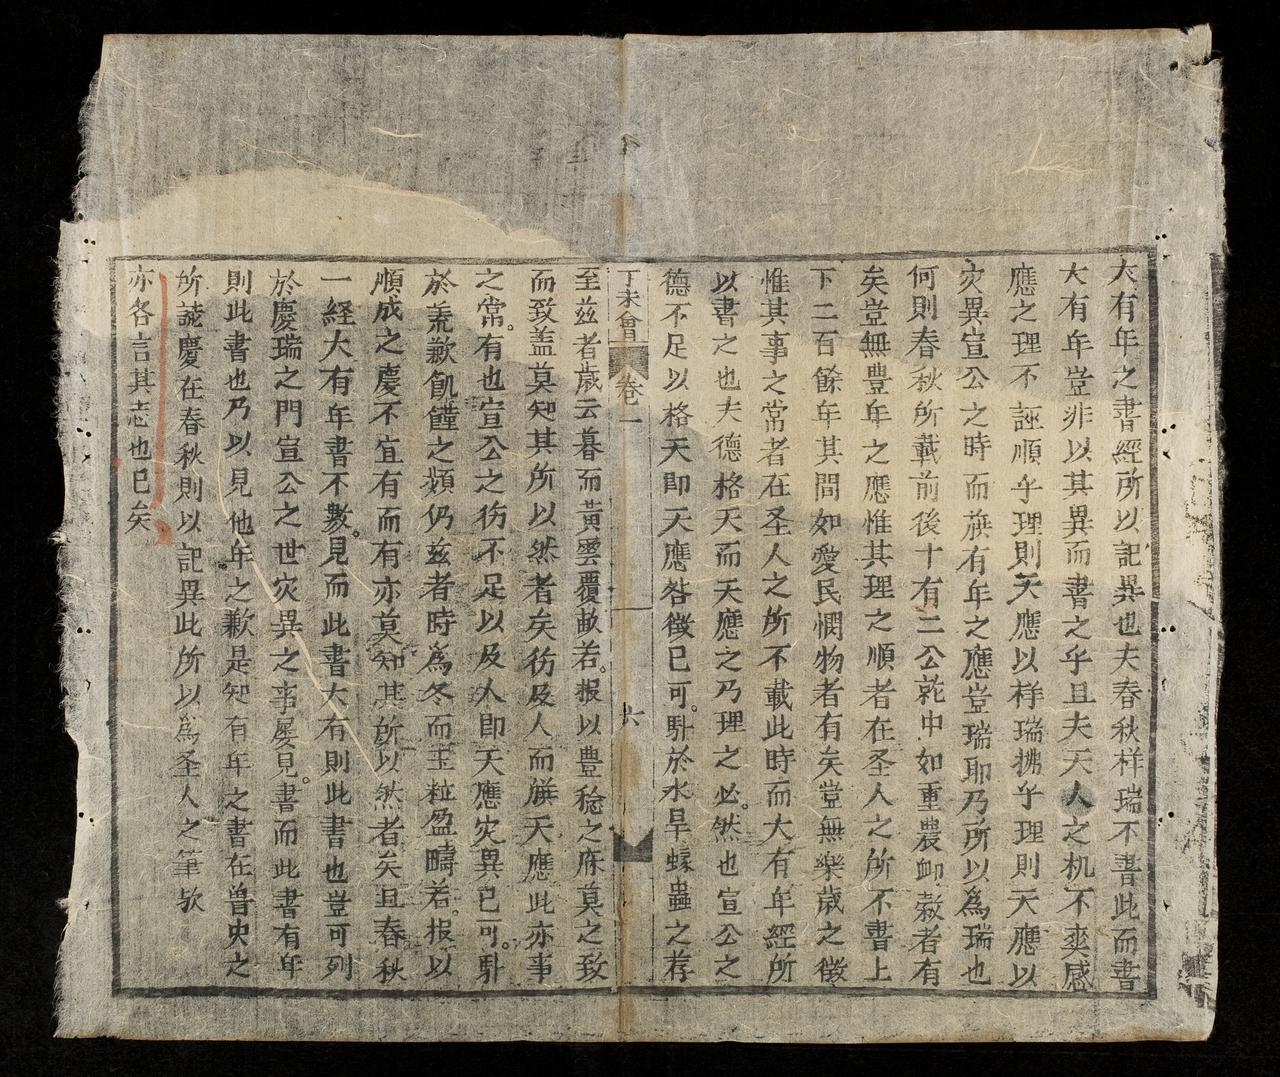 大有年之書經所以記異也夫春秋样瑞不書此而書
大有年豈非以其異而書之乎且夫天人之机不爽感
應之理不誣順乎理則天應以样瑞拂乎理則天應以
灾異宣公之時而旗有年之應豈瑞耶乃所以為瑞也
何則春秋所載前後十有二公乾中如重農卹穀者有
矣豈無豊年之應惟其理之順者在圣人之所不書上
下二百餘年其間如愛民憫物者有矣豈無樂歲之徵
惟其事之常者在圣人之所不載此時而大有年經所
以書之也夫德格天而天應之乃理之必然也宣公之
德不足以格天即天應咎徵已可。駢於水旱蝝蟲之荐
丁未會 卷一 六
至兹者歲云暮而黃雲覆畝若。报以豊稔之庥莫之致
而致盖莫知其所以然者矣彷及人而旗天應此亦事
之常。有也宣公之彷不足以及人即天應灾異已可。駢
於羗歉飢饉之類仍兹者時為冬而玉粒盈疇若。报以
順成之慶不宜有而有亦莫知其所以然者矣且春秋
一經大有年書不數。見而此書大有則此書也豈可列
於慶瑞之門宣公之世灾異之事屡見。書而此書有年
則此書也乃以見他年之歉是知有年之書在曾史之
所誌慶在春秋則以記異此所以為圣人之筆欤
亦各言其志也已矣